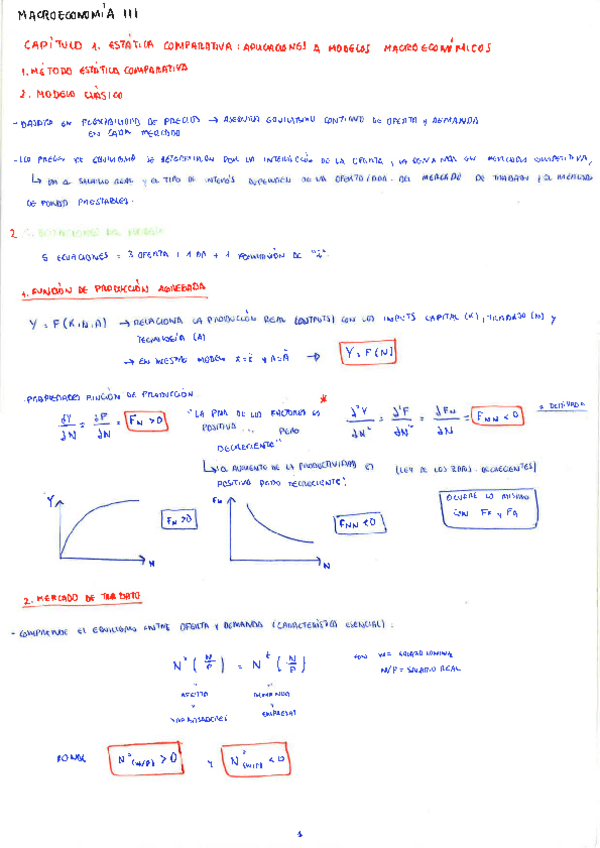 MACROECONOMÍA III
CAPÍTULO 1. ESTÁTICA COMPARATIVA: APLICACIONES A MODELOS MACROECONÓMICOS
1. MÉTODO ESTÁTICA COMPARATIVA
2. MODELO CLÁSICO
- BASADO EN FLEXIBILIDAD DE PRECIOS → ASEGURA EQUILIBRIO CONTINUO DE OFERTA Y DEMANDA
EN CADA MERCADO
- LOS PRECIOS DE EQUILIBRIO SE DETERMINAN POR LA INTERACCIÓN DE LA OFERTA Y LA DEMANDA EN MERCADOS COMPETITIVOS,
↳ SALARIO REAL Y EL TIPO DE INTERÉS DEPENDEN DE LA OFERTA/DDA. DEL MERCADO DE TRABAJO Y EL MERCADO
DE FONDOS PRESTABLES.
2. ECUACIONES DEL MODELO
5 ECUACIONES = 3 OFERTA + 1 DA + 1 "i".
1. FUNCIÓN DE PRODUCCIÓN AGREGADA
Y = F(K,N,A) → RELACIONA LA PRODUCCIÓN REAL (OUTPUTS) CON LOS INPUTS CAPITAL (K), TRABAJO (N) Y
TECNOLOGÍA (A)
→ EN NUESTRO MODELO K = K̄ Y A = Ā → Y = F(N)
PROPIEDADES FUNCIÓN DE PRODUCCIÓN
∂Y/∂N = ∂F/∂N = F_N > 0 "LA PMA DE LOS FACTORES ES POSITIVA PERO DECRECIENTE" * ∂²Y/∂N² = ∂²F/∂N² = ∂F_N/∂N = F_NN < 0 2 DERIVADA
↳ AUMENTO DE LA PRODUCTIVIDAD ES (LEY DE LOS RDOS. DECRECIENTES)
POSITIVO PERO DECRECIENTE"
Y N F_N > 0 F_N N F_NN < 0 OCURRE LO MISMO
CON F_K Y F_A
2. MERCADO DE TRABAJO
- COMPRENDE EL EQUILIBRIO ENTRE OFERTA Y DEMANDA (CARACTERÍSTICA ESENCIAL):
CON W = SALARIO NOMINAL
W/P = SALARIO REAL
OFERTA DEMANDA
TRABAJADORES EMPRESAS
DONDE (W/P) > 0 Y (W/P) < 0
1